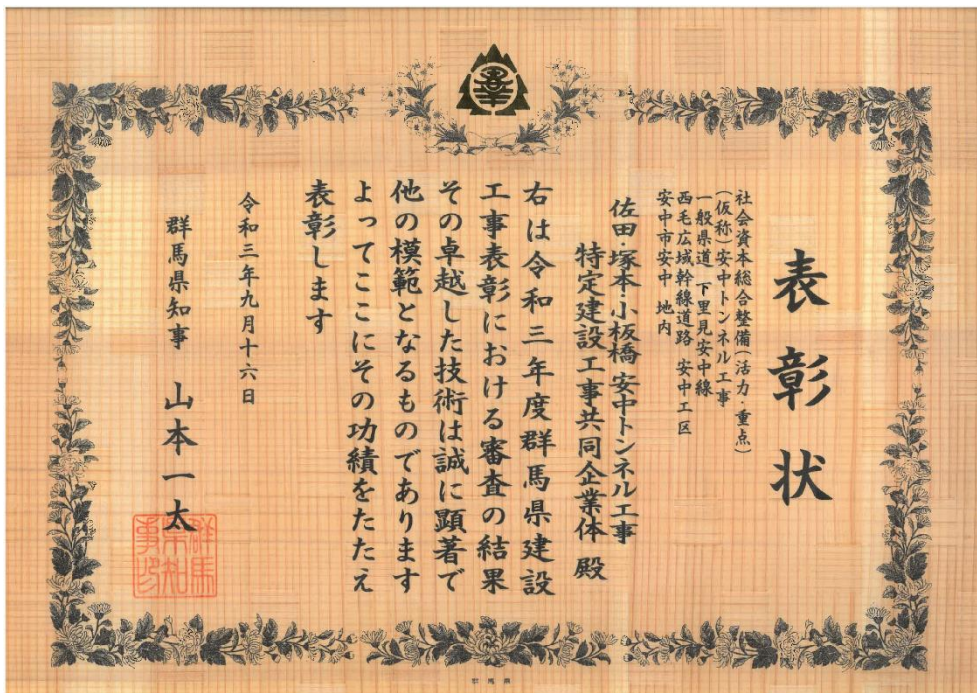 表彰状
社会資本総合整備(活力・重点)
(仮称)安中トンネル工事
一般県道 下里見安中線
西毛広域幹線道路 安中工区
安中市安中 地内
佐田・塚本・小板橋 安中トンネル工事
特定建設工事共同企業体 殿
右は令和三年度群馬県建設
工事表彰における審査の結果
その卓越した技術は誠に顕著で
他の模範となるものであります
よってここにその功績をたたえ
表彰します
令和三年九月十六日
群馬県知事 山本一太
群馬
県知
事印
群馬県